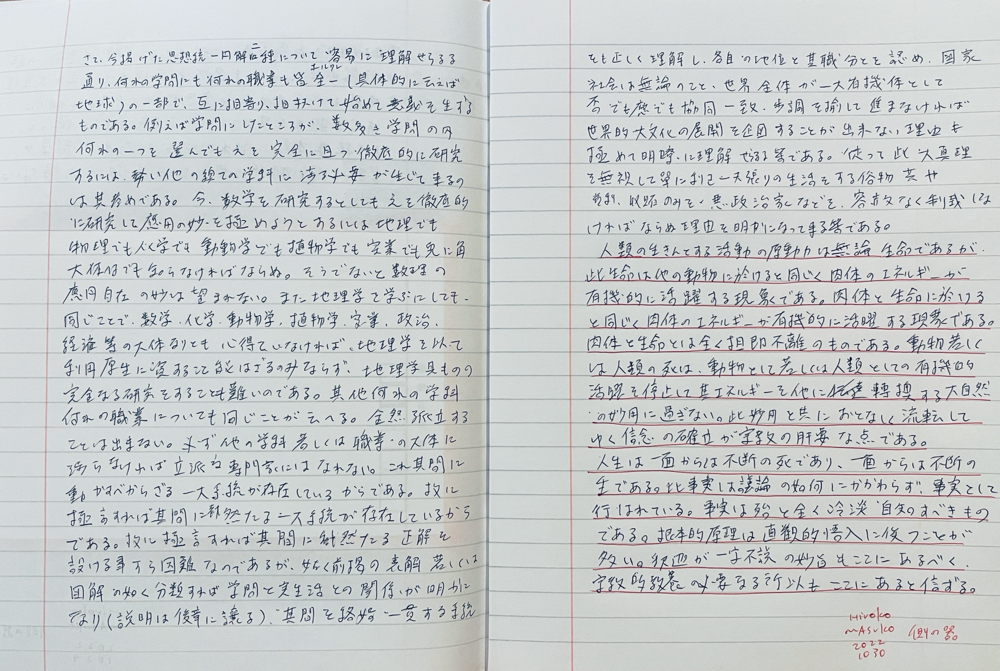 さて、今掲げた思想統一図解二種について容易に理解せらるる
通り、何れの学問にも何れの職業も皆全一(具体的に云えば
エルグレ
地球)の一部で、互に相寄り、相扶けて始めて意義を生ずる
ものである。例えば学問にしたところが、数多き学問の内
何れの一つを選んでもえを完全に且つ徹底的に研究
するには、勢い他の総ての学科に渉る必要が生じて来るの
は其為めである。今、数学を研究するとしてもえを徹底的
に研究して應用の妙を極めようとするには地理でも
物理でも化学でも動動学でも植物学でも実業でも兎に角
大体はでも知らなければならぬ。そうでないと数理の
應用自在の妙は望まれない。また地理学で学ぶにしても、
同じことで、数学、化学、動物学、植物学、実業、政治、
経済等の大体なりとも心得ていなければ、地理学を以って
利用厚生に資すること能はざるのみならず、地理学其もの
完全なる研究をすることも難いのである。其他何れの学科
何れの職業についても同じことが云へる。全然孤立する
ことは出来ない。必ず他の学科若しくは職業の大体に
渉らなければ立派な専門家にはなれない。これ其間に
動かすべからざる一大系統が存在しているからである。故に
極言すれば其間に純然たる一大系統が存在しているから
である。故に極言すれば其間に純然たる正解を
設ける事すら困難なのであるが、如く前掲の表解若しくは
図解の如く分類すれば学問と実生活との関係が明かに
なり(説明は後章に譲る)、其間を終始一貫する系統
をも正しく理解し、各自の地位と其職分とを認め、国家
社会は無論のこと、世界全体が一大有機体として
否でも応でも協同一致、歩調を揃して進まなければ
世界的大文化の展開を企図することが出来ない理由も
極めて明晰に理解せらるる筈である。従って此大真理
を無視して単に己一天張りの生活をする俗物共や
私利のみを 悪政治家などを、容赦なく制裁しな
ければならぬ理由を明かになって来る筈である。
人類の生きんとする活動の原動力は無論生命であるが
此生命は他の動物に於けると同じく肉体のエネルギーが
有機的に活躍する現象である。肉体と生命に於ける
と同じく肉体のエネルギーが有機的に活躍する現象である。
肉体と生命とは全く相即不離のものである。動物若しく
は人類の死は、動物として若しくは人類としての有機的
活躍を停止して其エネルギーを他に転換する大自然
の妙用に過ぎない。此妙用と共におとなしく流転して
ゆく信念の確立が宗教の肝要な点である。
人生は一面からは不断の死であり、一面からは不断の
生である。此事実は議論の如何にかかわらず、事実として
行はれている。事実は殆と全く冷淡自知すべきもの
である。根本的原理は直観的悟入に俟つことが
多い。釈迦が一字不説の妙旨もここにあるべく、
宗教的教養の必要なる所以もここにあると信ずる。
Hiroko
MASUKO
2022
1030